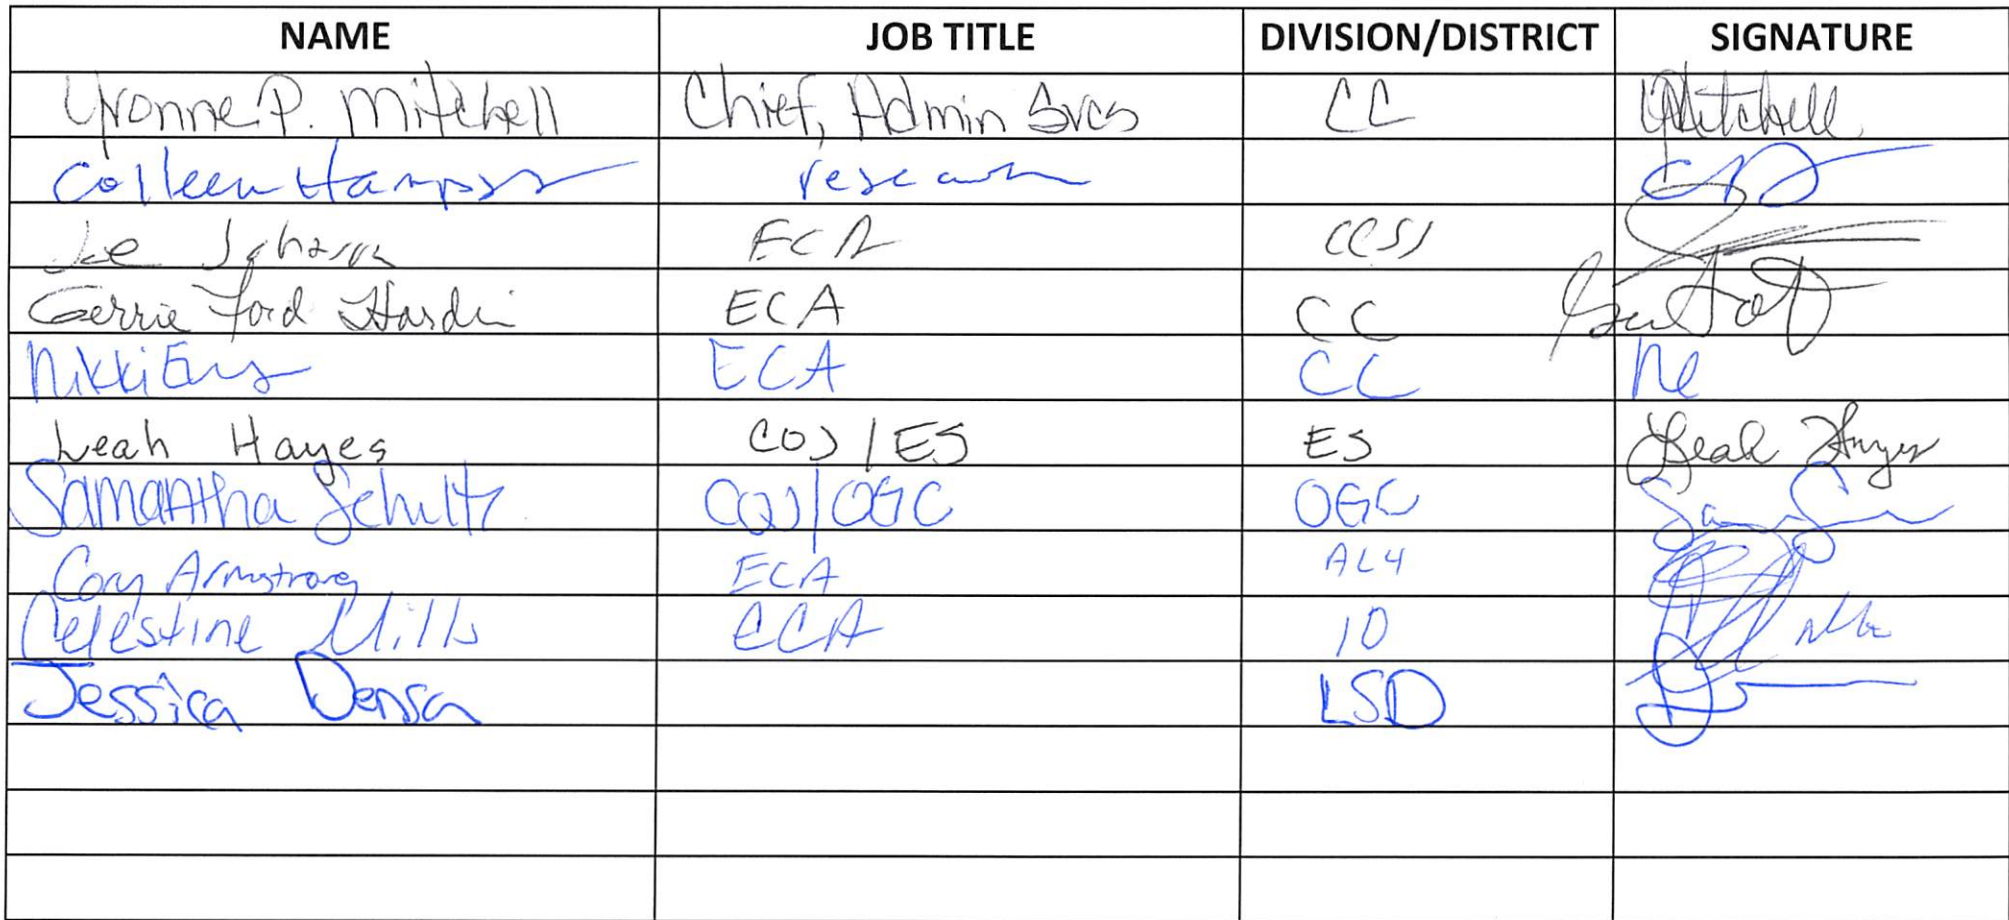 NAME JOB TITLE DIVISION/DISTRICT SIGNATURE
Yvonne P. Mitchell Chief, Admin Svcs CC YMitchell
Colleen Hampsey research
Joe Johnson ECA CCS1
Gerrie Ford Hardin ECA CC
Nikki Evans ECA CC NE
Leah Hayes COJ/ES ES Leah Hayes
Samantha Schultz COJ/OGC OGC
Cory Armstrong ECA AL4
Celestine Mills ECA 10
Jessica Densa LSD